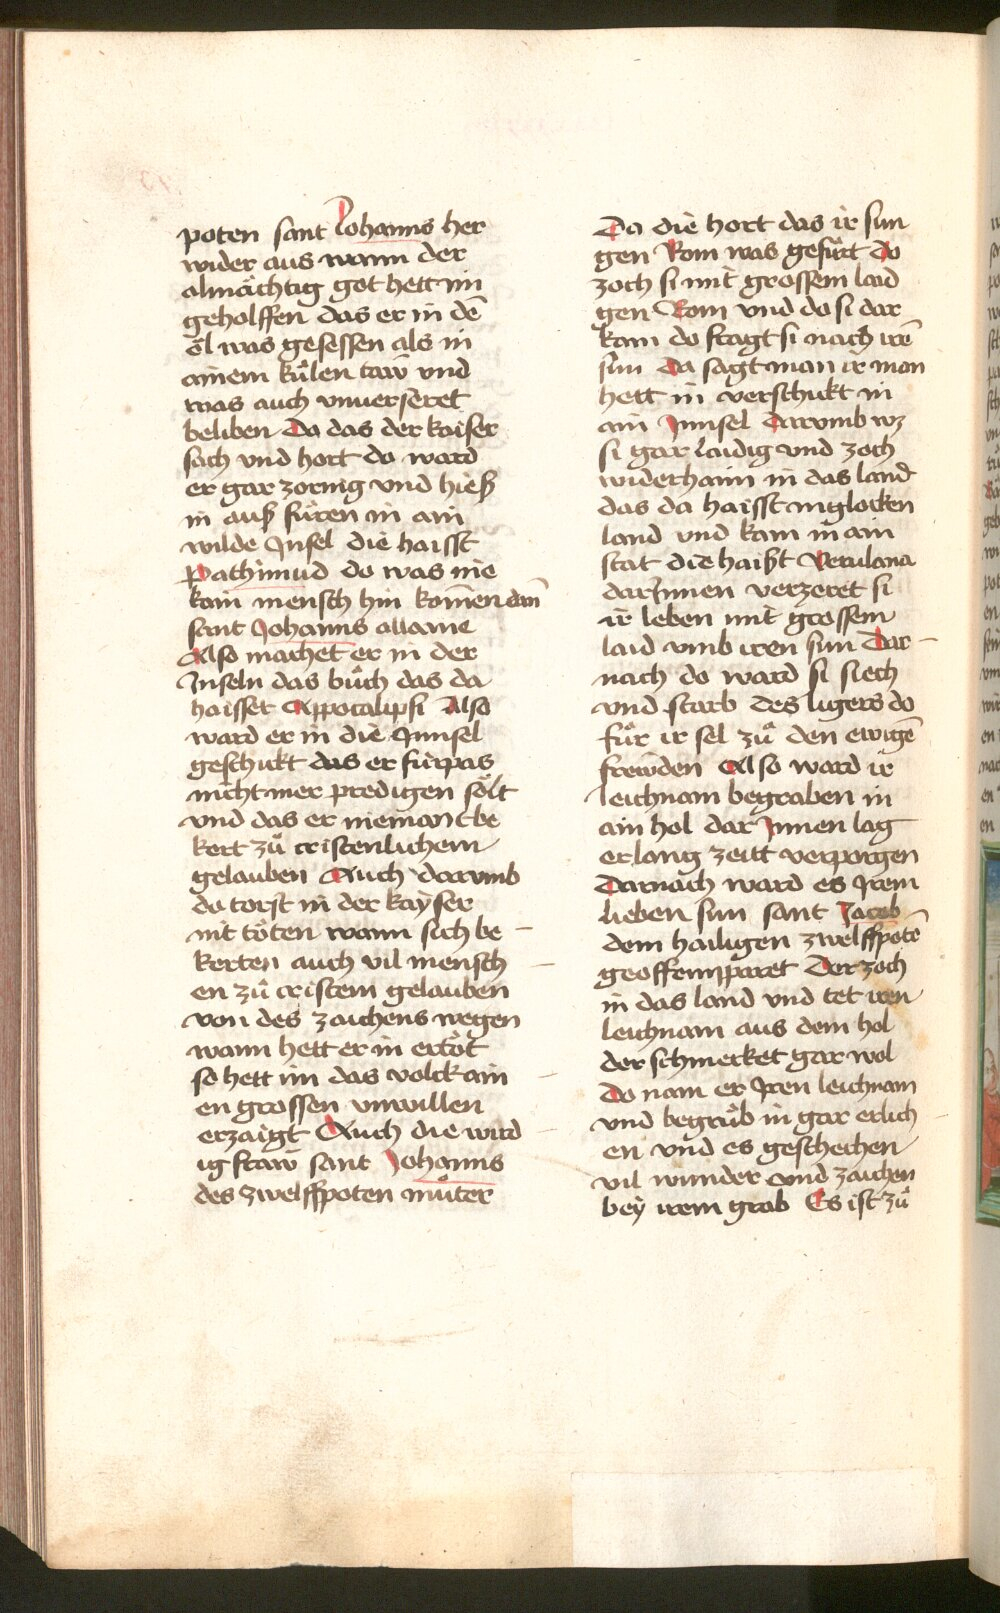 poten sant Johanns her
wider aus wann der
almächtig got hett im
geholffen das er in dē
öl was gesessen als in
ainem kůlen taw vnd
was auch vnuerseret
beliben Da das der kaiser
sach vnd hort do ward
er gar zornig vnd hieß
in auß fůren in ain
wilde Jnsel die haisst
Pathimud do was nie
kain mensch hin komen dan̄
sant Johanns allaine
Also machet er in der
Jnseln das bůch das da
haisset Appocalipsi Also
ward er in die Jnnsel
geschikt das er fürpas
nicht mer predigen sölt
vnd das er niemant be
kert zů cristenlichem
gelauben Auch darumb
do torst in der kayser
nit töten wann sich be
kerten auch vil mensch
en zů cristem gelauben
von des zaichens wegen
wann hett er in ertöt
so hett im das volck ain
en grossen vnwillen
erzaigt Auch die wird
ig fraw sant Johanns
des zwelffpoten můter
Da die hort das ir sun
gen Rom was gefůrt do
zoch si mit grossem laid
gen Rom vnd do si dar
kam do fragt si nach irē
sun Da sagt man ir man
hett in verschikt in
ain Jnnsel Darumb wz
si gar laidig vnd zoch
widerhaim in das land
das da haisst inglocken
land vnd kam in ain
stat die haißt Verulana
darJnnen verzeret si
ir leben mit grossem
laid vmb iren sun Dar
nach do ward si siech
vnd starb des ligers do
fůr ir sel zů den ewigē
frewden Also ward ir
leichnam begraben in
ain hol dar Jnnen lag
er lang zeitt verporgen
Darnach ward es Jrem
lieben sun sant Jacob
dem hailigen zwelffpotē
geoffemparet Der zoch
in das land vnd tet iren
leichnam aus dem hol
der schmecket gar wol
Do nam er Jren leichnam
vnd begrůb in gar erlich
en vnd es geschechen
vil wunder vnd zaichen
bey irem grab Es ist zů